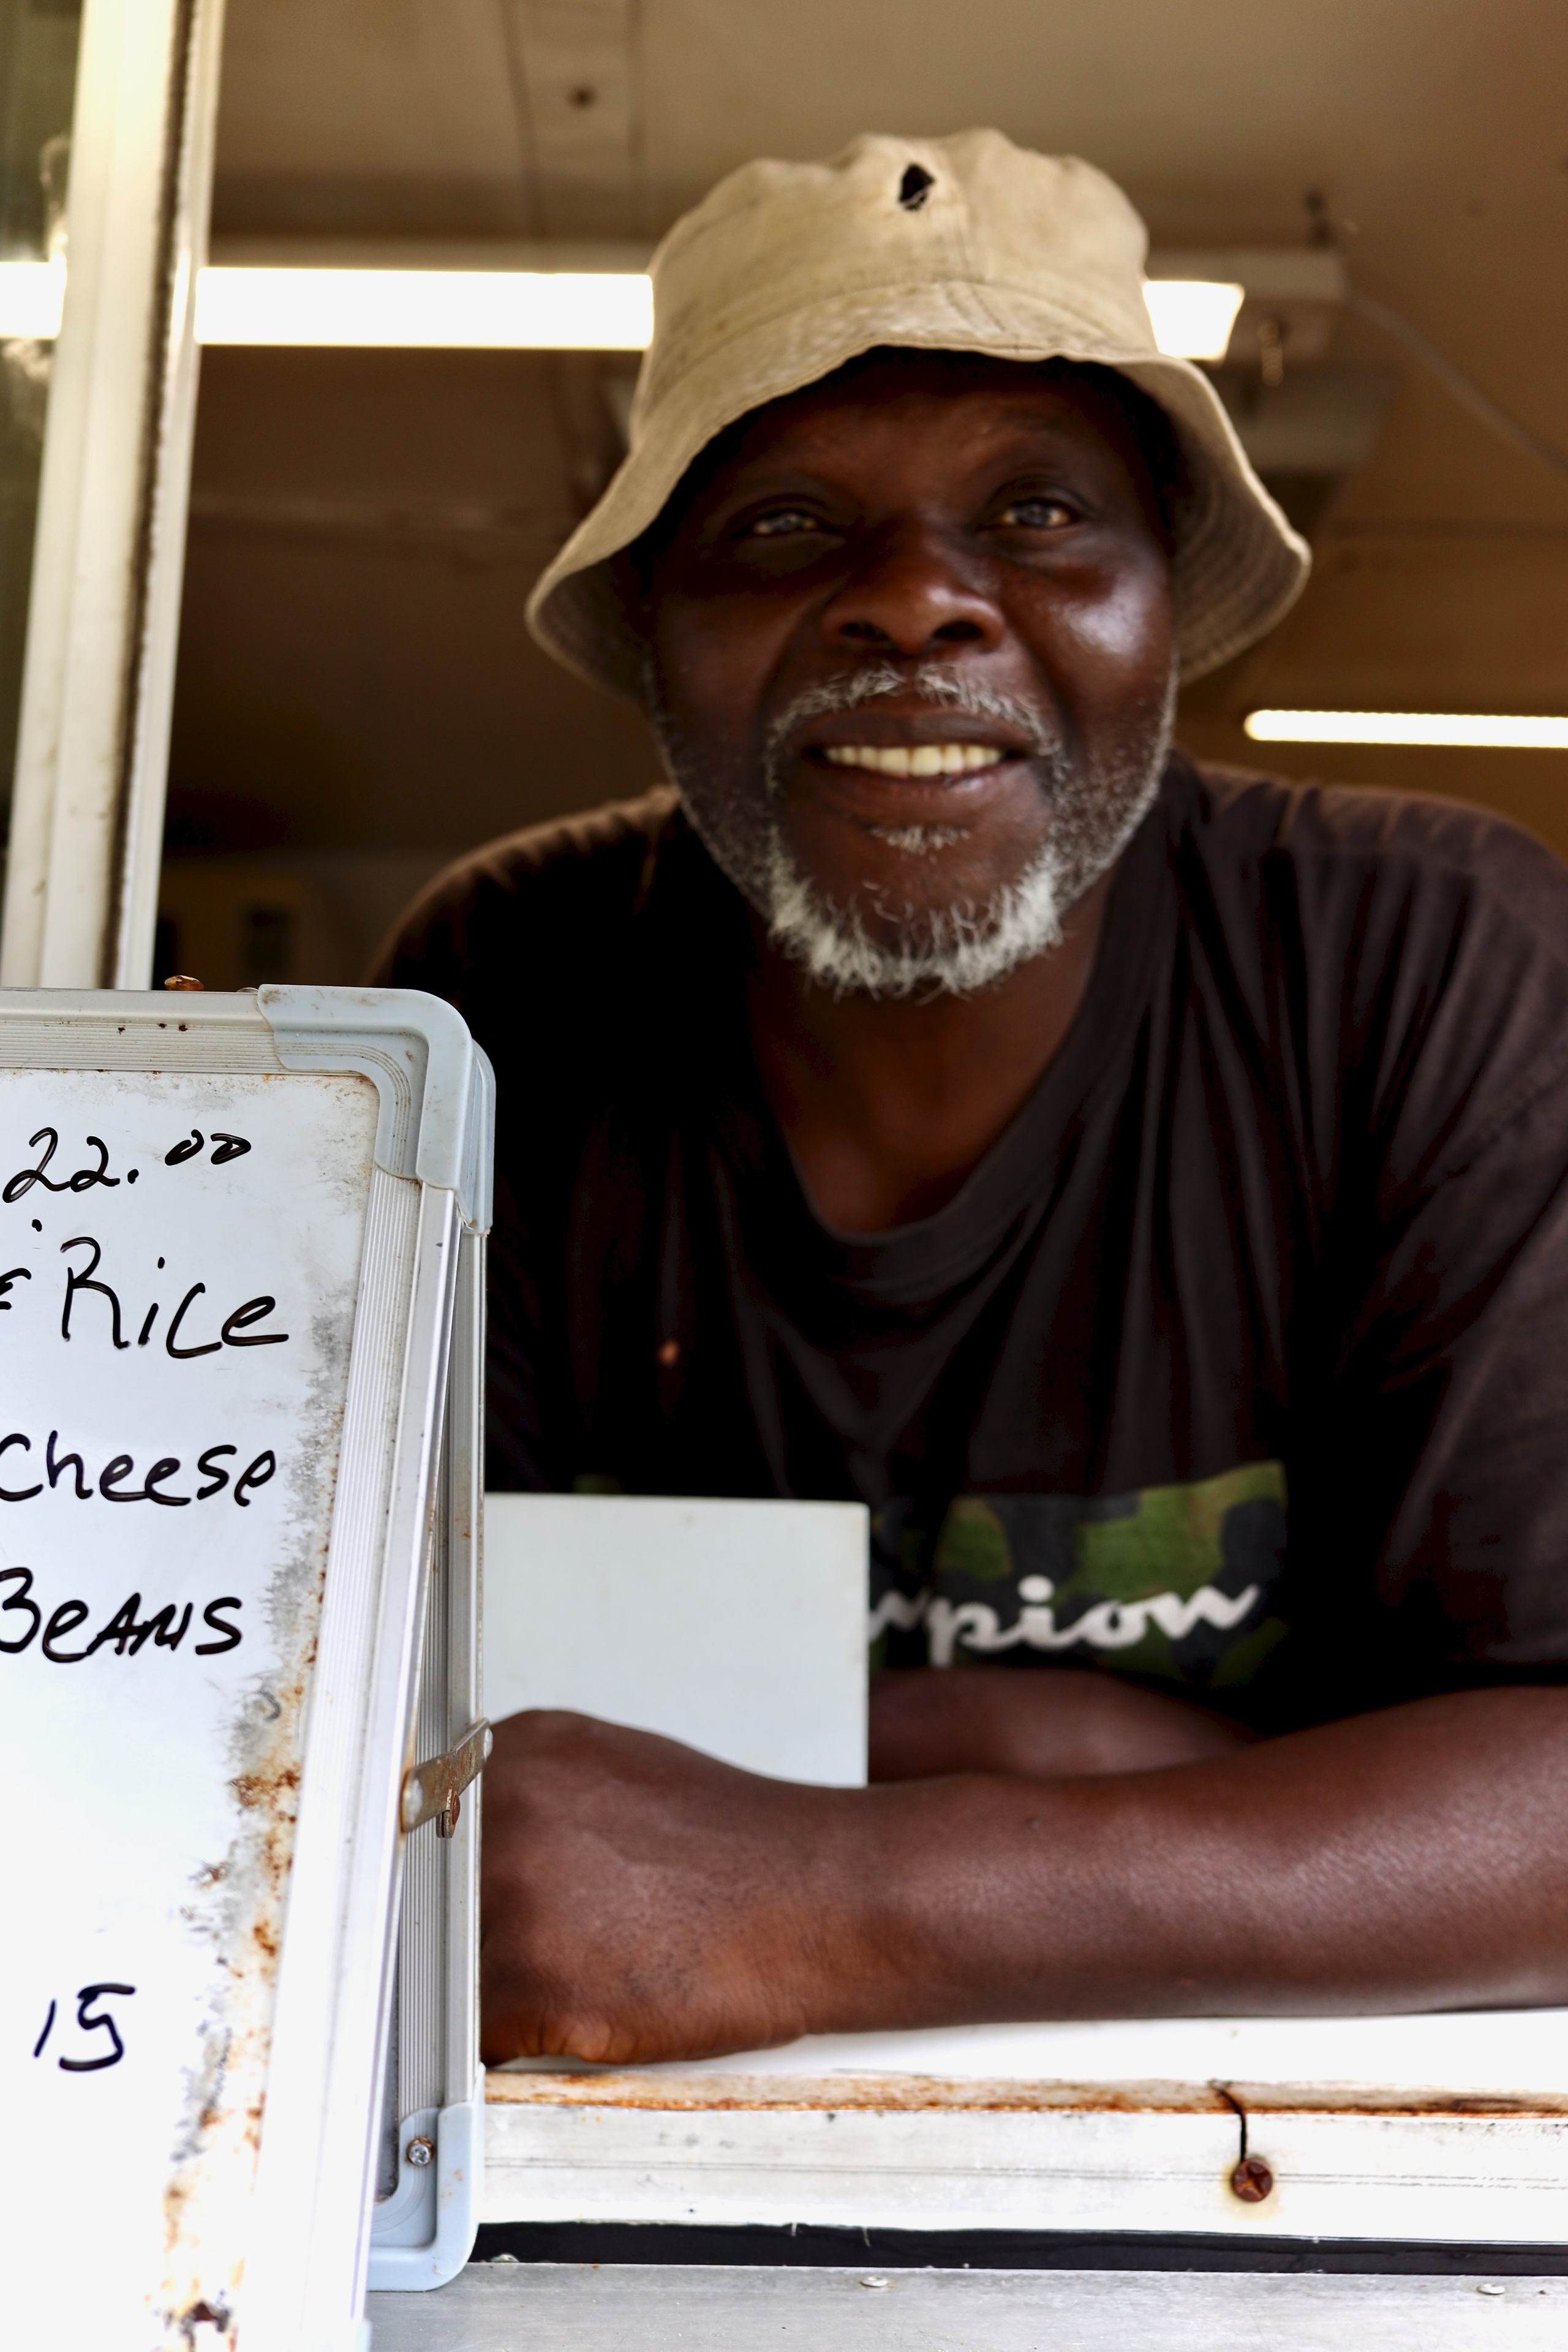 22.00
Rice
cheese
BeANS
15
mpion